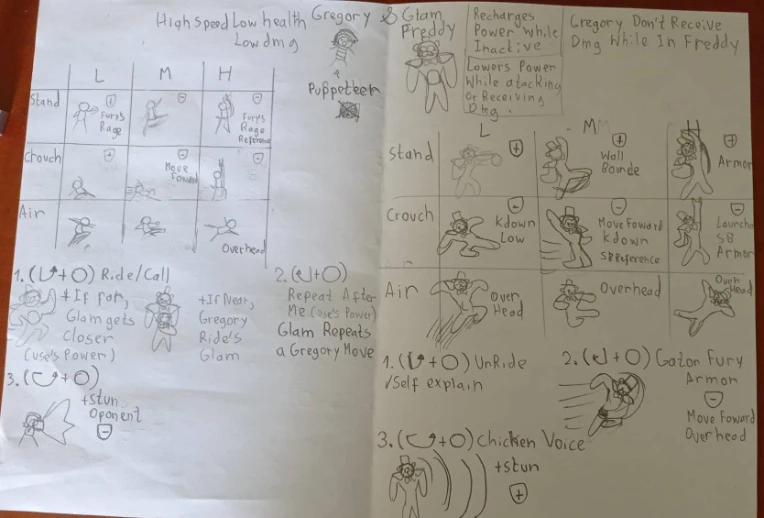 High Speed Low health
Low dmg
Gregory &
Puppeteer
L M H
Stand
Furys
Rage
Furys
Rage
Reference
Crouch
Move
Foward
Air
Overhead
1. ( + O) Ride/Call
+If far,
Glam gets
Closer
(use's Power)
+If Near,
Gregory
Ride's
Glam
2. ( + O)
Repeat After
Me (use's Power)
Glam Repeats
a Gregory Move
3. ( + O)
+Stun
Oponent
Glam
Freddy
Recharges
Power while
Inactive
Lowers Power
While atacking
Or Receiving
Dmg.
Gregory Don't Receive
Dmg While In Freddy
L M
H
Stand
Wall
Bounde
Armor
Crouch
Kdown
Low
Move Foward
Kdown
SB Reference
Launcher
SB
Armor
Air
Over
Head
Overhead
Over
Head
1. ( + O) UnRide
Self explain
2. ( + O) Gator Fury
Armor
Move Foward
Overhead
3. ( + O) Chicken Voice
+Stun